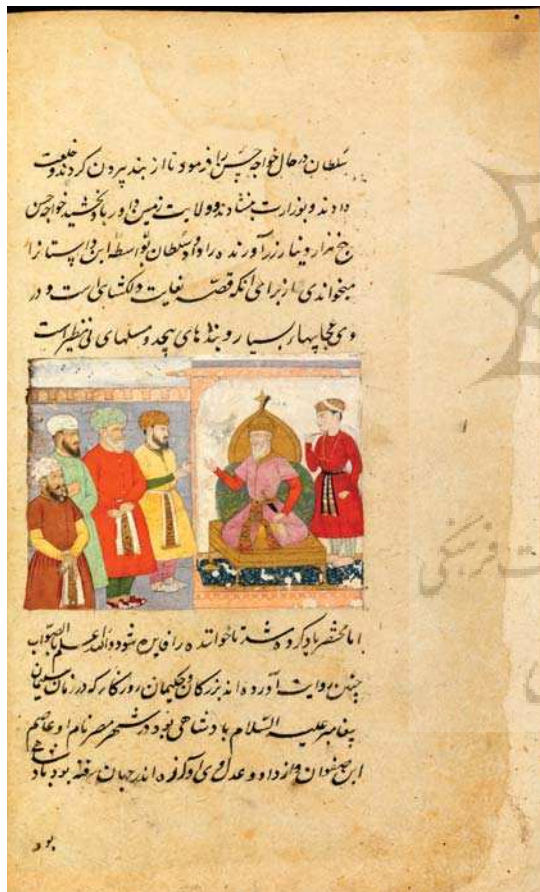 سلطان در حال خواجه حسن را فرمود تا از بند بیرون کردند و خلعت
دادند و بوزارت بنشاندند و ولایت زمین داور بدو بخشید خواجه حسن
پنج هزار دینار زر آورنده را داد و سلطان بواسطه این داستانرا
میخواندی از برای آنکه قصه بغایت دلکشای است و در
وی عجایبهای بسیار و پندهای بیحد و مسلهای بی نظیر است
اما مختصر یاد کرده شد تا خواننده را فایده شود والله اعلم بالصواب
چنین روایت آورده اند بزرگان و حکیمان روزگار که در زمان سلیمان
پیغامبر علیه السلام پادشاهی بود در شهر مصر نام او عاصم
ابن صفوان و از داد و عدل وی آوازه اندر جهان رفته بود پادشاهی
بود
ت فرهنگی